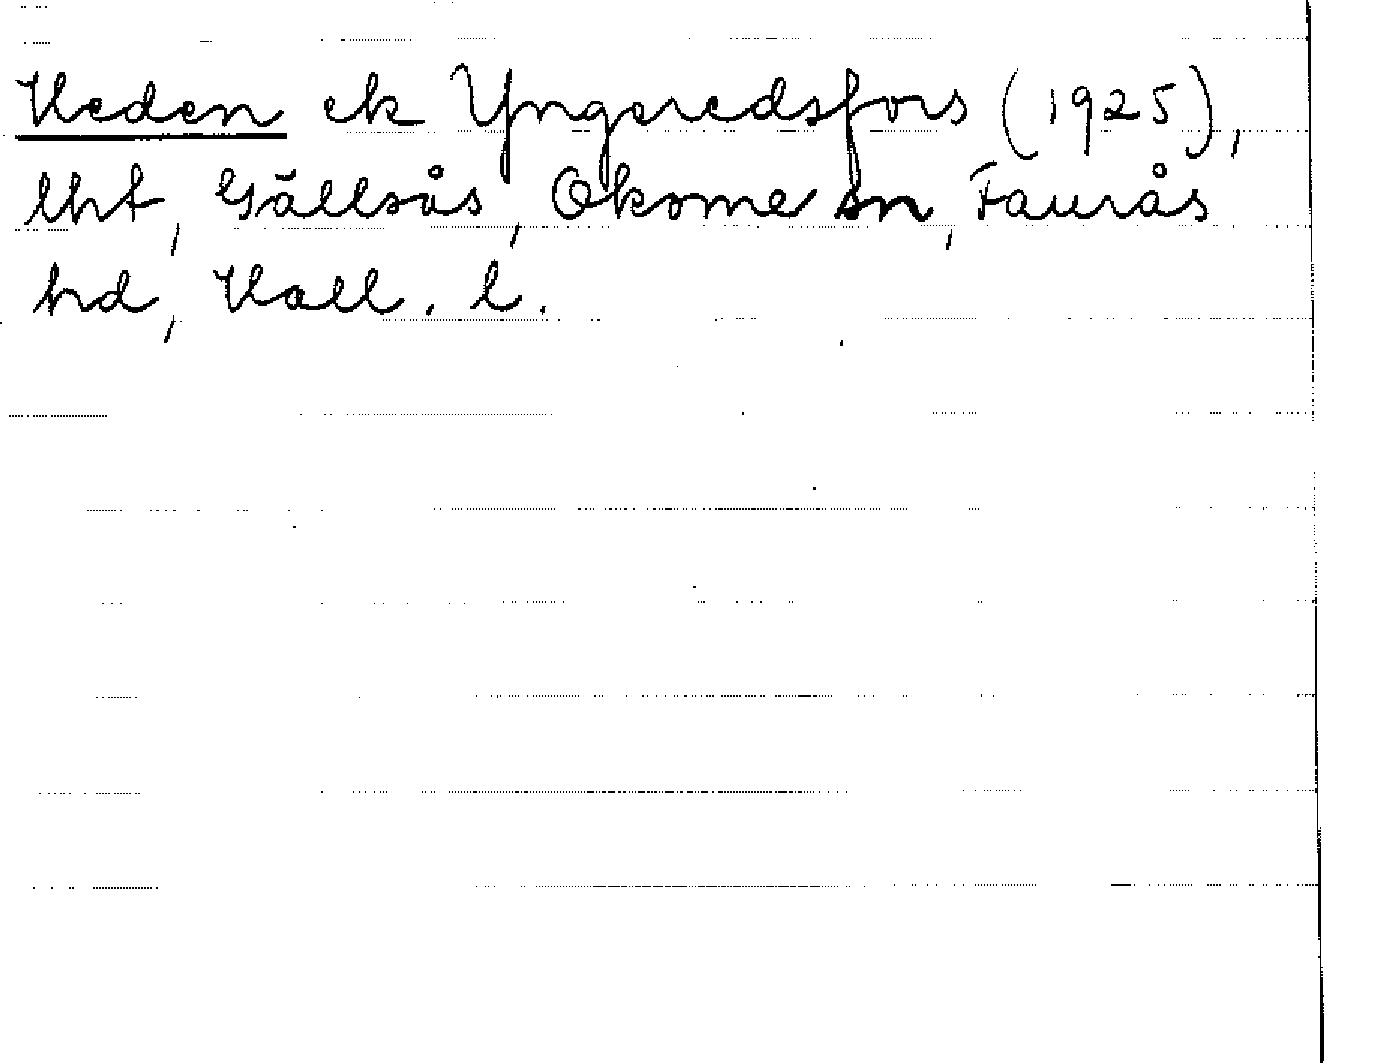 Heden ek Yngeredsfors (1925),
lht, Gällsås, Okome sn, Faurås
hd, Hall. l.